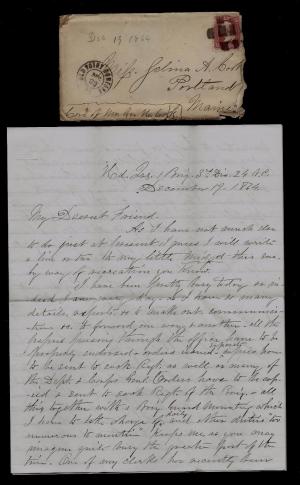 Dec 13 1864
OLD POINT COMFORT
Miss Selina A. Cook
Portland
Maine
Hd. Qrs. 1 Brig. 3d Div. 24 A.C.
December 17. 1864.
My Dearest Friend.
As I have not much else
to do just at present I guess I will write
a line or two to my little
by way of recreation you know.
I have been pretty busy today as in-
deed I am every day. as I have so many
details, reports &c to make out. communica-
tions &c to forward one way & another. all the
papers passing through the office have to be
properly endorsed & orders issued. copies have
to be sent to each Regt. as well as many of
the Dept. & Corps Genl. Orders have to be cop-
ied & sent to each Regt. of the Brig. - all
this together with a Guard Mounting which
I have to take charge of, and other duties too
numerous to mention keeps me as you may
imagine quite busy the greater part of the
time. One of my clerks has recently been